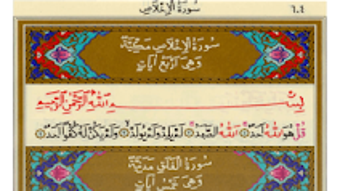 ٦٠٤ سُورَةُ الْإِخْلَاصِ
سُورَةُ الْإِخْلَاصِ مَكِّيَّةٌ
وَهِيَ أَرْبَعُ آيَاتٍ
بِسْمِ اللَّهِ الرَّحْمَٰنِ الرَّحِيمِ
قُلْ هُوَ اللَّهُ أَحَدٌ ۝ اللَّهُ الصَّمَدُ ۝ لَمْ يَلِدْ وَلَمْ يُولَدْ ۝ وَلَمْ يَكُنْ لَهُ كُفُوًا أَحَدٌ ۝
سُورَةُ الْفَلَقِ مَدَنِيَّةٌ
وَهِيَ خَمْسُ آيَاتٍ